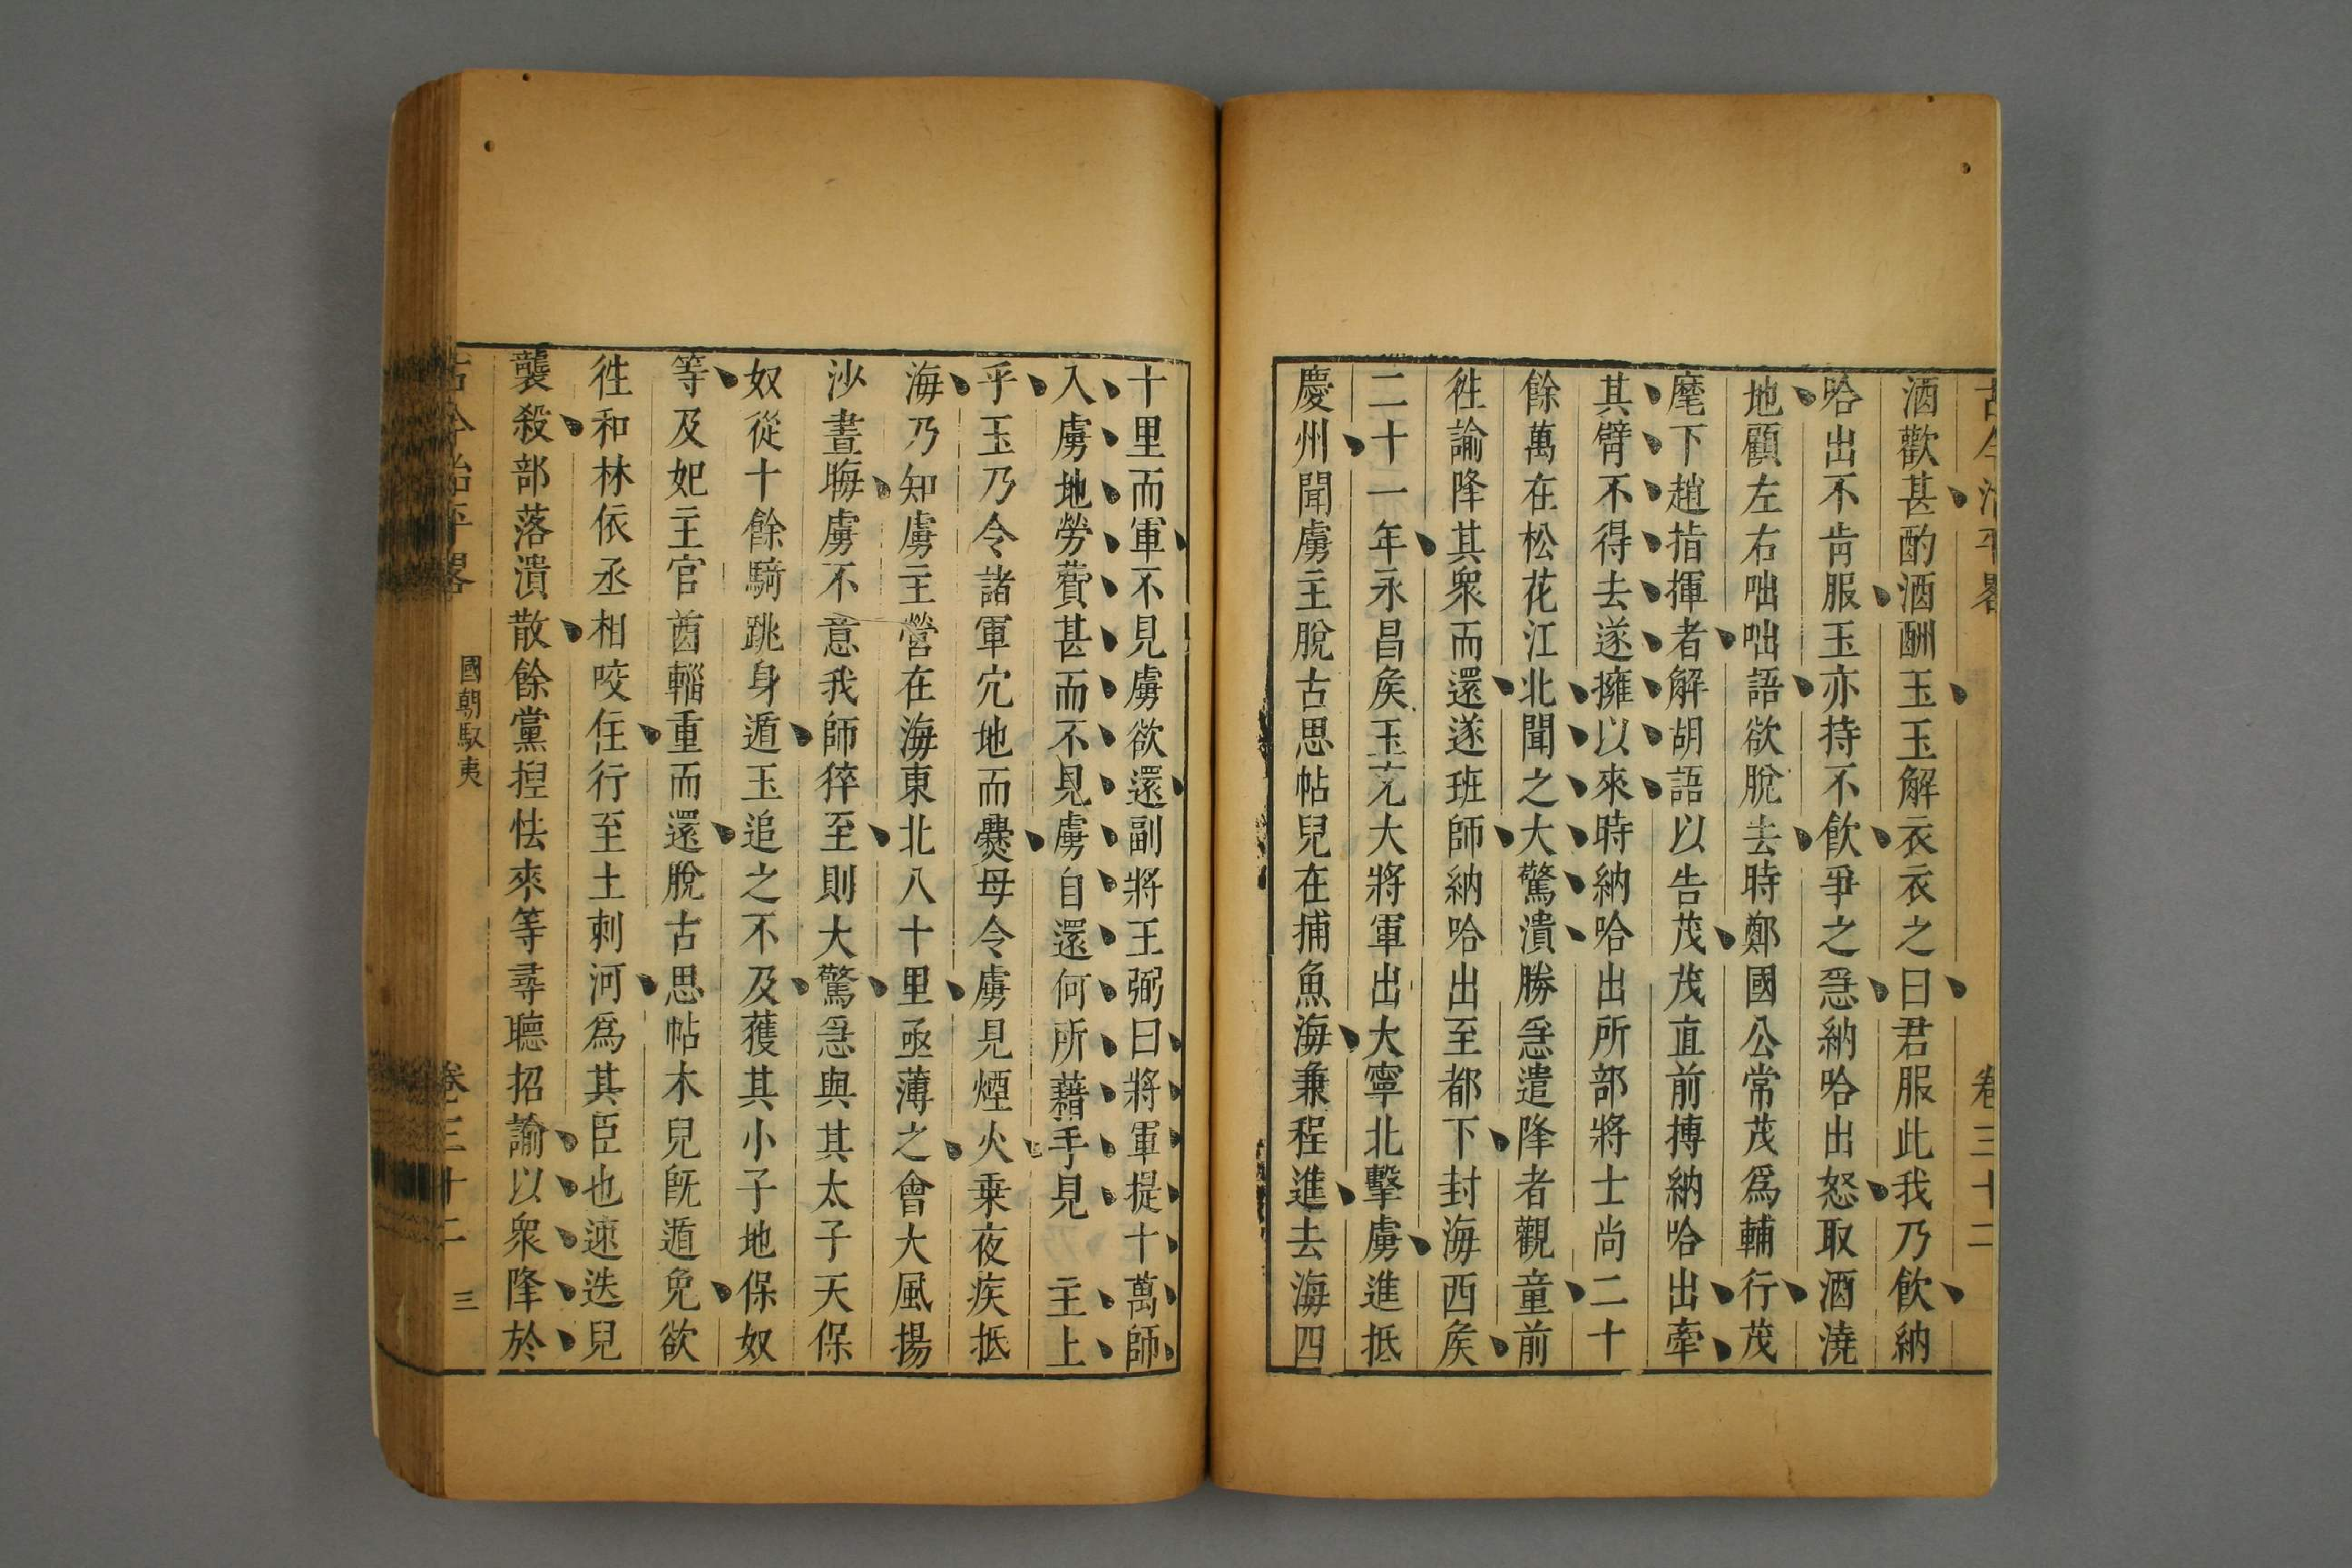 古今治平畧 卷三十二
酒歡甚酌酒酬玉玉解衣衣之曰君服此我乃飲納
哈出不肯服玉亦持不飲爭之急納哈出怒取酒澆
地顧左右咄咄語欲脫去時鄭國公常茂爲輔行茂
麾下趙指揮者解胡語以告茂茂直前搏納哈出牽
其臂不得去遂擁以來時納哈出所部將士尚二十
餘萬在松花江北聞之大驚潰勝急遣降者觀童前
徃諭降其衆而還遂班師納哈出至都下封海西矦
二十一年永昌矦玉充大將軍出大寧北擊虜進抵
慶州聞虜主脫古思帖兒在捕魚海兼程進去海四
十里而軍不見虜欲還副將王弼曰將軍提十萬師
入虜地勞費甚而不見虜自還何所藉手見 主上
乎玉乃令諸軍穴地而爨毋令虜見煙火乗夜疾抵
海乃知虜主營在海東北八十里亟薄之會大風揚
沙晝晦虜不意我師猝至則大驚急與其太子天保
奴從十餘騎跳身遁玉追之不及獲其小子地保奴
等及妃主官酋輜重而還脫古思帖木兒旣遁免欲
徃和林依丞相咬住行至土剌河爲其臣也速迭兒
襲殺部落潰散餘黨揑怯來等尋聽招諭以衆降於
古今治平畧 國朝馭夷 卷三十二 三